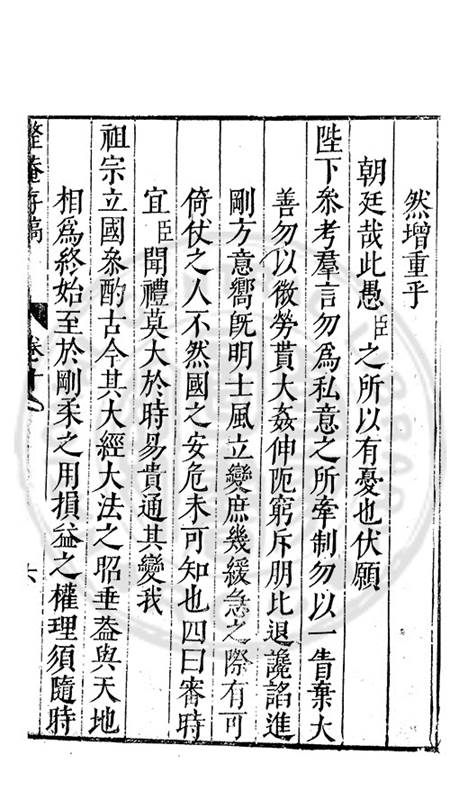 然增重乎
朝廷哉此愚臣之所以有憂也伏願
陛下叅考羣言勿爲私意之所牽制勿以一眚棄大
善勿以微勞貰大姦伸阨窮斥朋比退讒諂進
剛方意嚮旣明士風立變庶幾緩急之際有可
倚仗之人不然國之安危未可知也四曰審時
宜臣聞禮莫大於時易貴通其變我
祖宗立國叅酌古今其大經大法之昭垂葢與天地
相爲終始至於剛柔之用損益之權理須隨時
整菴存稿
卷十
六